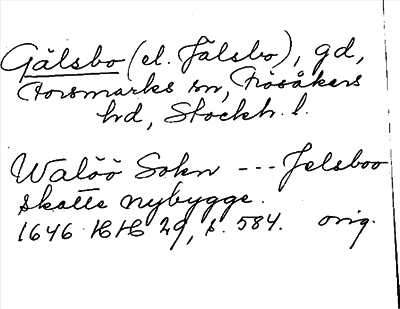 Gälsbo (el. Jälsbo), gd,
Forsmarks sn, Frösåkers
hd, Stockh. l.
Walöö Sokn --- Jelsboo
skatte nybygge.
1646 HH 29, s. 584. orig.